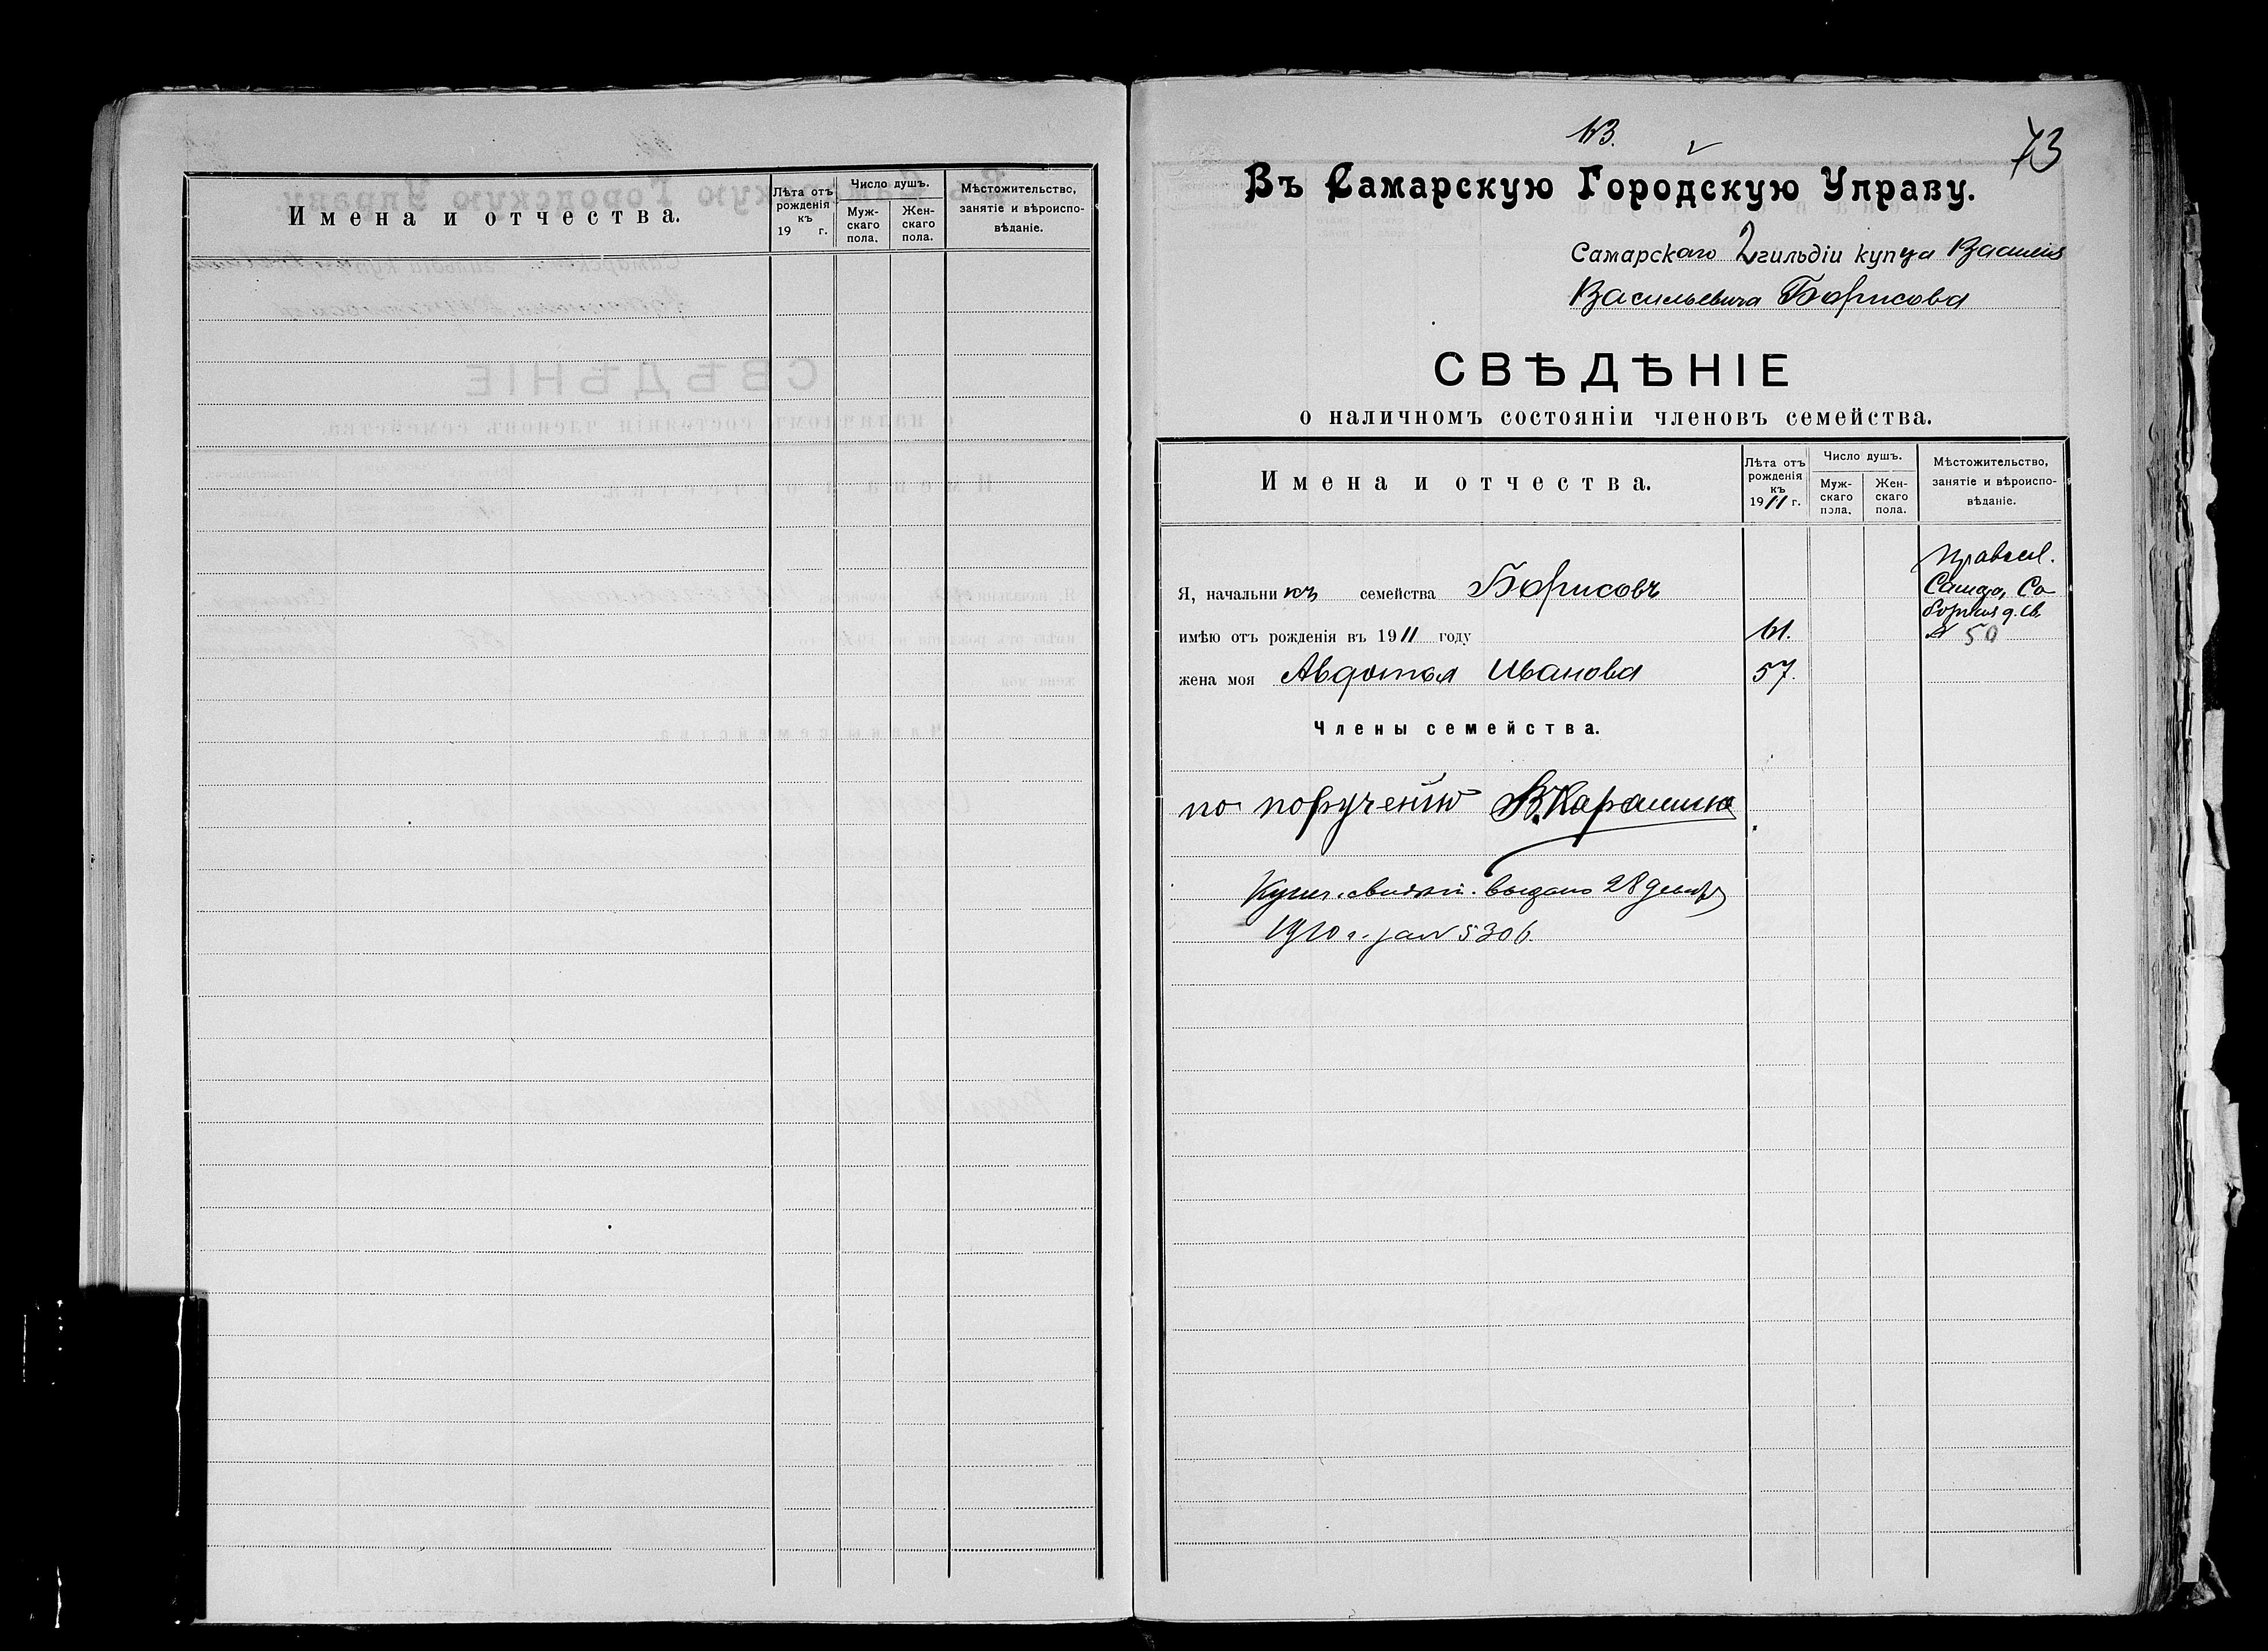 Имена и отчества.
Лѣта отъ рожденія къ 19 г.
Число душъ.
Мужскаго пола.
Женскаго пола.
Мѣстожительство, занятіе и вѣроисповѣданіе.
73
Въ Самарскую Городскую Управу.
Самарскаго 2 гильдіи купца Василія
Васильевича Борисова
СВѢДѢНІЕ
о наличномъ состояніи членовъ семейства.
Имена и отчества.
Лѣта отъ рожденія къ 1911 г.
Число душъ.
Мужскаго пола.
Женскаго пола.
Мѣстожительство, занятіе и вѣроисповѣданіе.
Правосл.
Я, начальникъ семейства Борисовъ
Самара, Со
борная
имѣю отъ рожденія въ 1911 году 61.
№ 50
жена моя Авдотья Иванова 57.
Члены семейства.
по порученію
Купеч. выдано 28 декабр
1910 г. за № 5306.